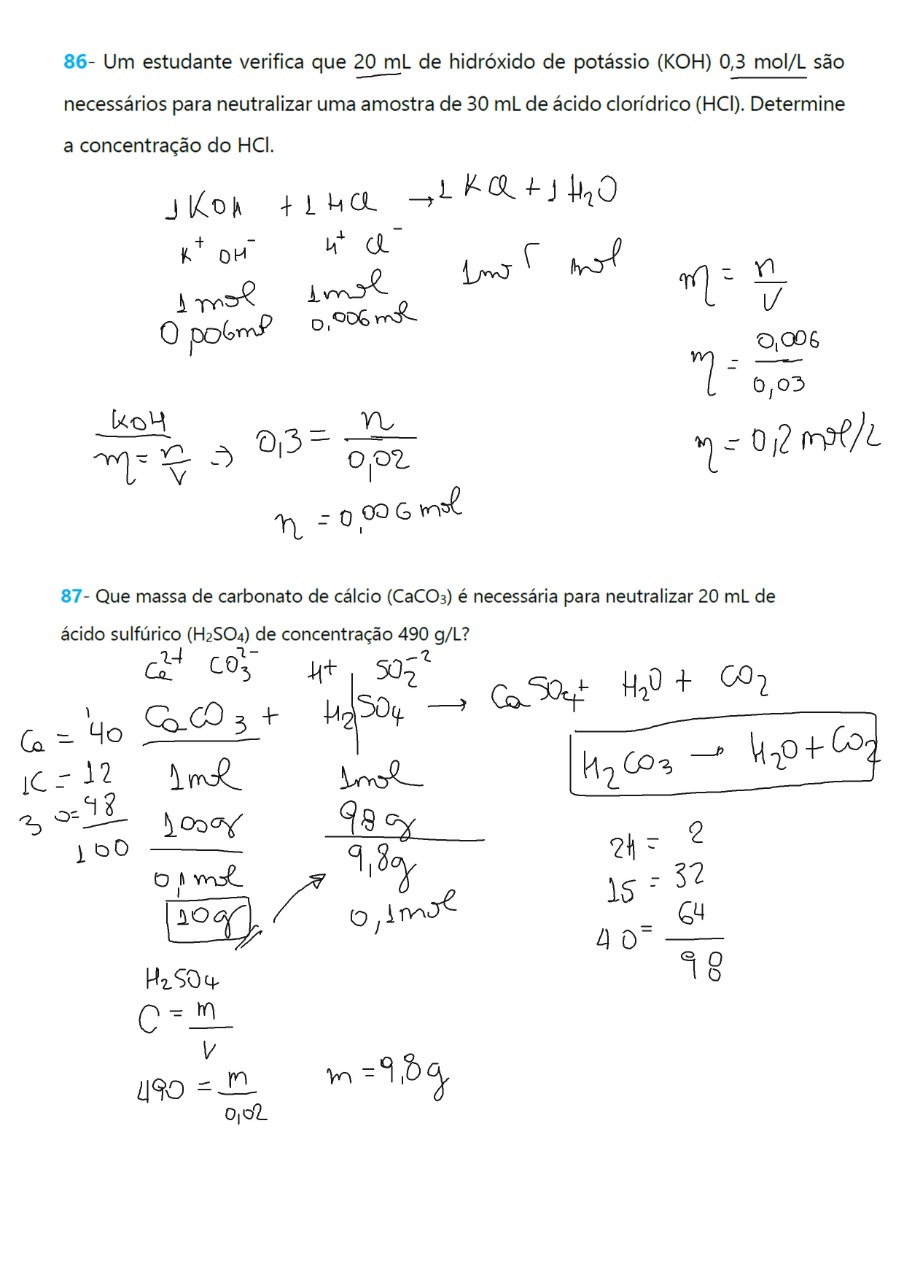 86- Um estudante verifica que 20 mL de hidróxido de potássio (KOH) 0,3 mol/L são
necessários para neutralizar uma amostra de 30 mL de ácido clorídrico (HCl). Determine
a concentração do HCl.
1 KOH + 1 HCl → 1 KCl + 1 H₂O
K⁺ OH⁻ H⁺ Cl⁻
1 mol 1 mol 1 mol mol
0,006 mol 0,006 mol
m = n/V
m = 0,006/0,03
m = 0,2 mol/L
KOH
m = n/V ⇒ 0,3 = n/0,02
n = 0,006 mol
87- Que massa de carbonato de cálcio (CaCO₃) é necessária para neutralizar 20 mL de
ácido sulfúrico (H₂SO₄) de concentração 490 g/L?
Ca²⁺ CO₃²⁻ H⁺ SO₄⁻²
CaCO₃ + H₂SO₄ → CaSO₄ + H₂O + CO₂
H₂CO₃ → H₂O + CO₂
Ca = 40
1C = 12
3 O = 48
100
1 mol 1 mol
100g 98 g
0,1 mol 9,8g
10g 0,1 mol
2H = 2
1S = 32
4 O = 64
98
H₂SO₄
C = m/V
490 = m/0,02
m = 9,8g